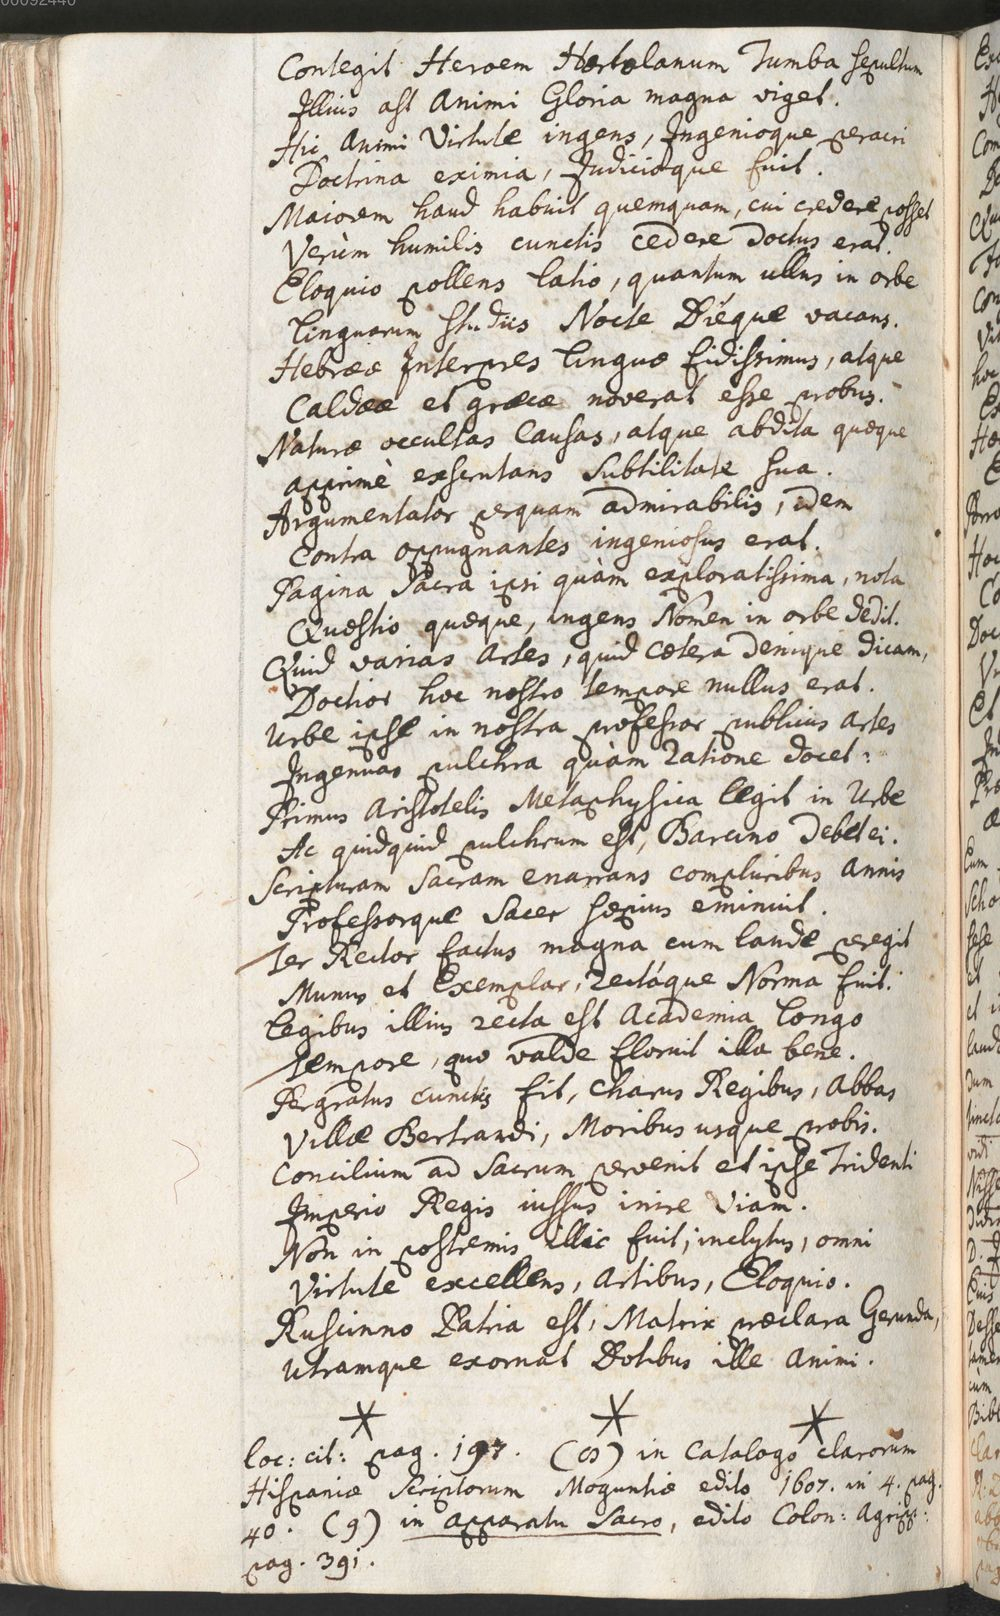 Contegit Heroem Hortolanum Tumba sepultum
Illius ast Animi Gloria magna viget.
Hic Animi Virtute ingens, Ingenioque peracri
Doctrina eximia, Judicioque fuit.
Maiorem haud habuit quemquam, cui credere posset
Verùm humilis cunctis cedere Doctus erat.
Eloquio pollens latio, quantum ullus in orbe
Linguarum studiis Nocte Diéque vacans.
Hebrææ Interpres linguæ fidissimus, atque
Caldææ et græcæ noverat esse probus.
Naturæ occultas Causas, atque abdita quæque
apprimè exscrutans Subtilitate sua.
Argumentator perquam admirabilis, idem
Contra oppugnantes ingeniosus erat.
Pagina Sacra ipsi quàm exploratissima, nota
Quæstio quæque, ingens Nomen in orbe dedit.
Quid varias Artes, quid cætera denique dicam,
Doctior hoc nostro tempore nullus erat.
Urbe ipse in nostra professor publicus artes
Ingenuas pulchra quàm ratione docet:
Primus Aristotelis Metaphysica legit in Urbe
Ac quidquid pulchrum est, Barcino debet ei.
Scripturam Sacram enarrans compluribus Annis
Professorque Sacer sæpius eminuit.
Ter Rector factus magna cum laude peregit
Munus et Exemplar, rectáque Norma fuit.
Legibus illius recta est Academia longo
Tempore, quo valde floruit illa bene.
Pergratus cunctis fit, charus Regibus, Abbas
Villæ Bertrandi, Moribus usque probis.
Concilium ad Sacrum pervenit et ipse Tridenti
Imperio Regis iussus inire Viam.
Non in postremis illic fuit, inclytus, omni
Virtute excellens, Artibus, Eloquio.
Ruscinno Patria est, Matrix præclara Gerunda,
Utramque exornat Dotibus ille Animi.
loc: cit: pag. 197. (8) in Catalogo clarorum
Hispaniæ Scriptorum Moguntiæ edito 1607. in 4. pag.
40. (9) in apparatu Sacro, edito Colon: Agripp:
pag. 391.